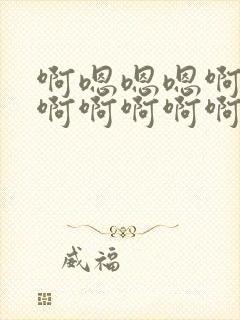 啊嗯嗯嗯啊
啊啊啊啊啊
威福